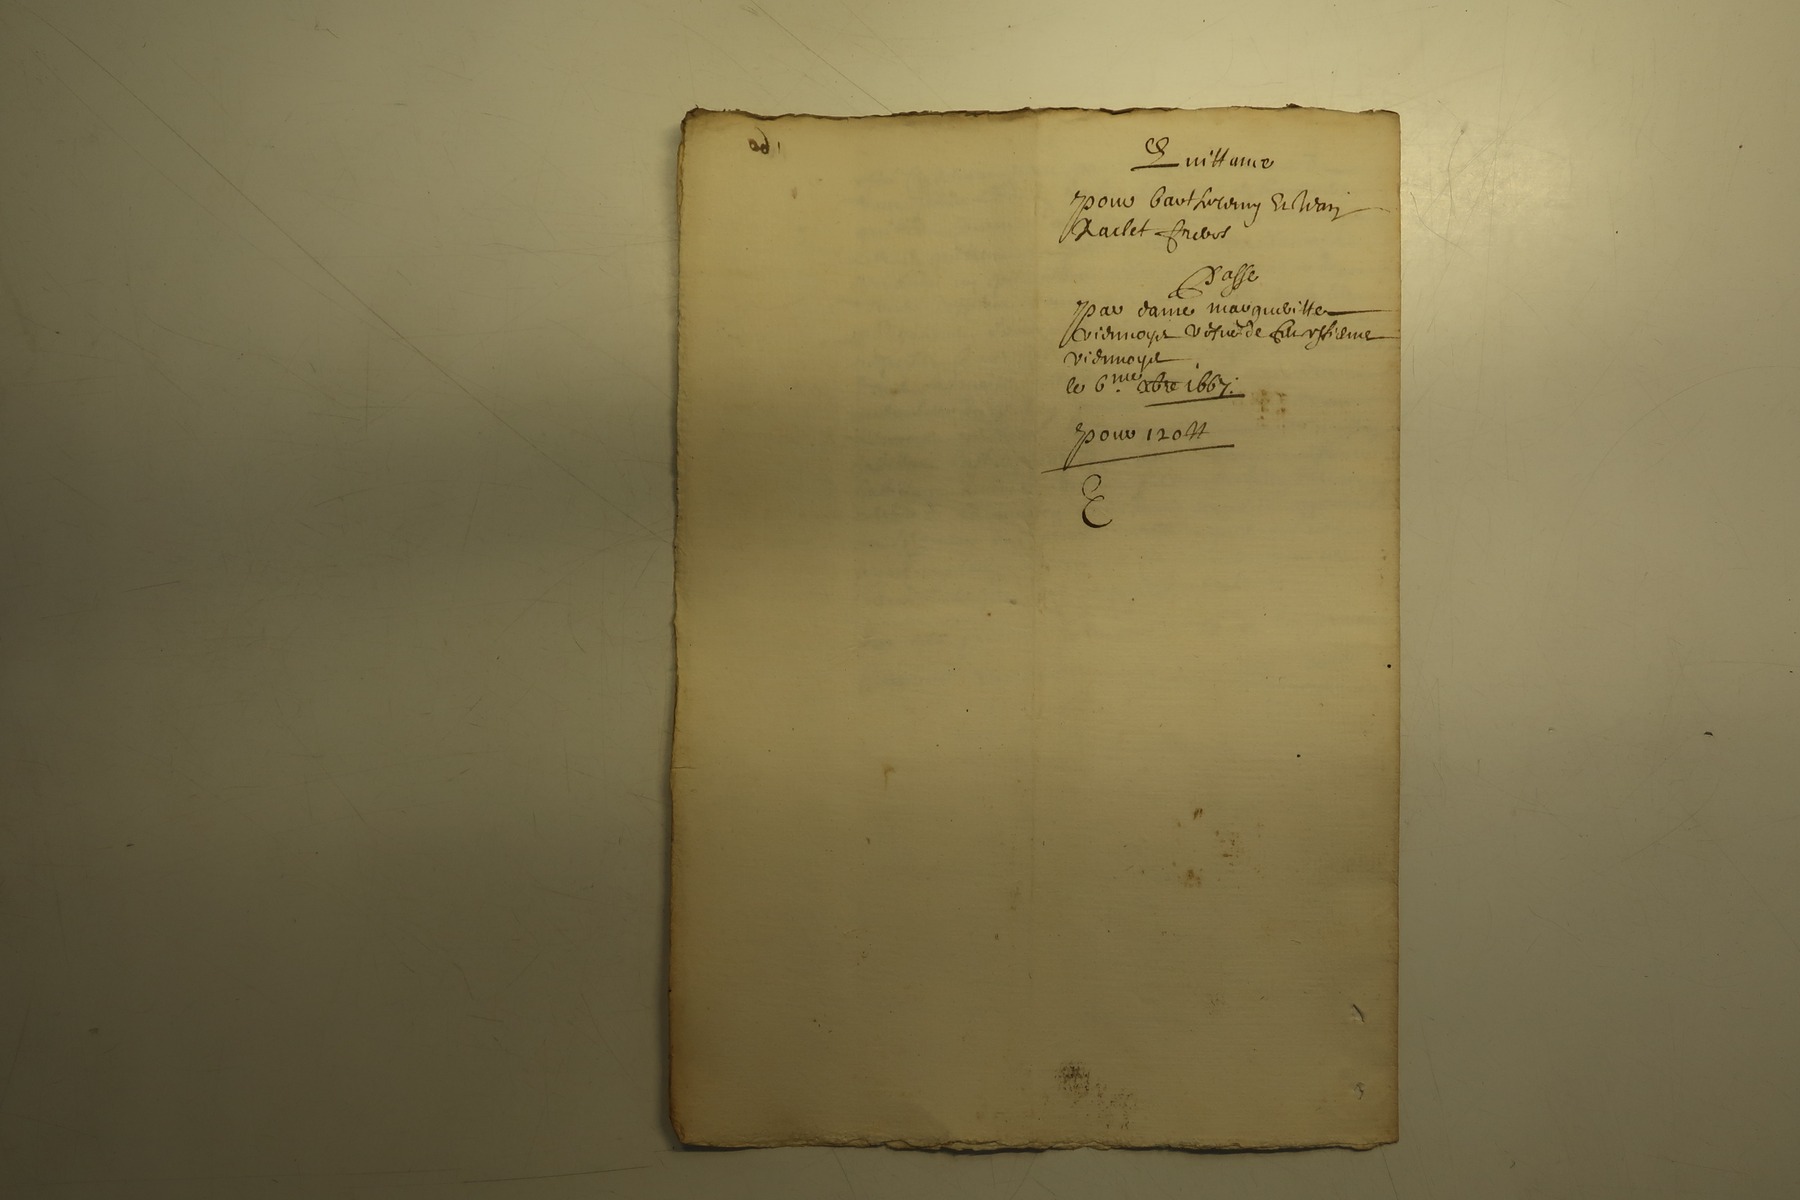 Quittance
pour barthelemy &
Raclet freres
Passe
par dame margueritte
viennoys vefue de feu
viennoys
le 6.me xbre 1667.
pour 120 tt